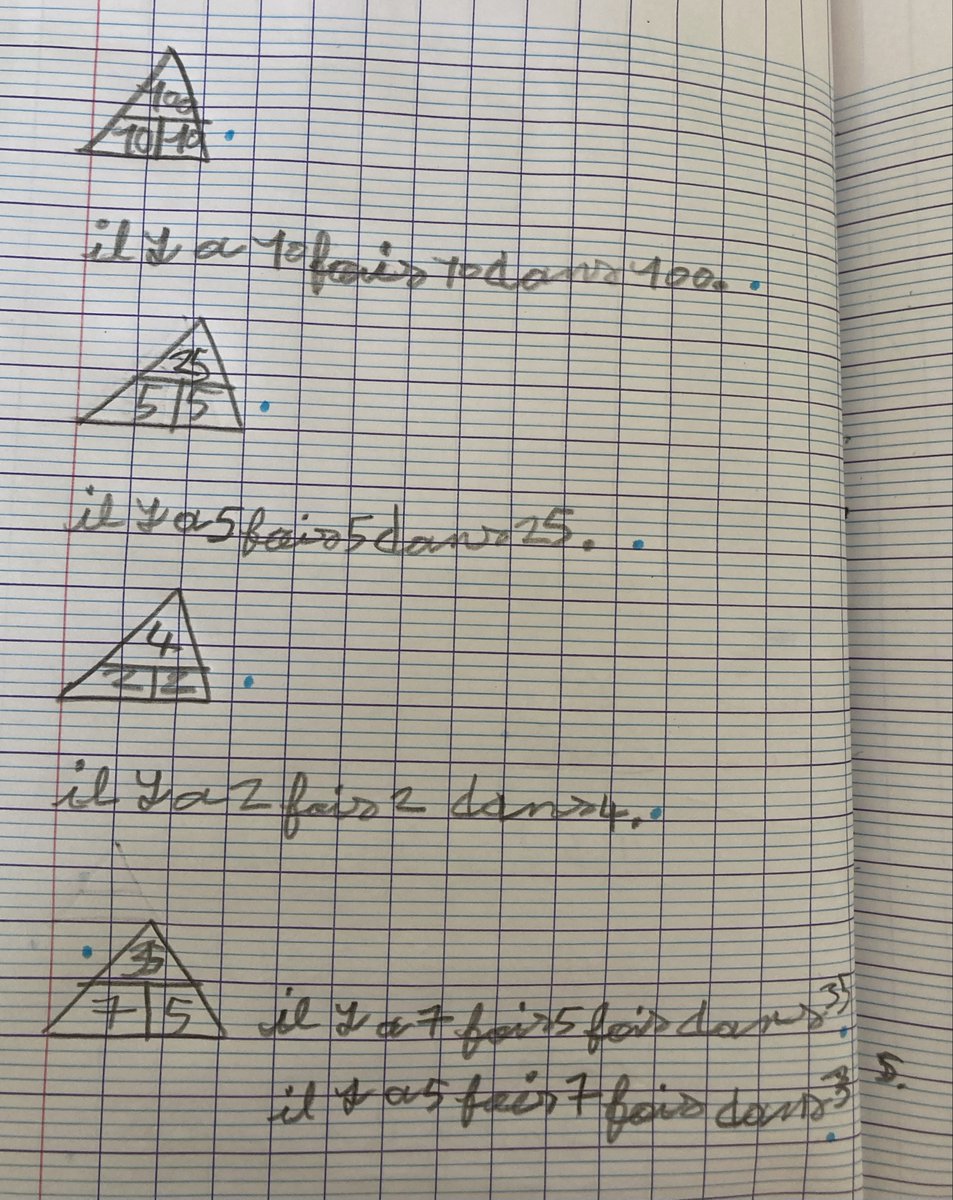 100
10 10
il y a 10 fois 10 dans 100.
25
5 5
il y a 5 fois 5 dans 25.
4
2 2
il y a 2 fois 2 dans 4.
35
7 5
il y a 7 fois 5 fois dans 35
il y a 5 fois 7 fois dans 35.